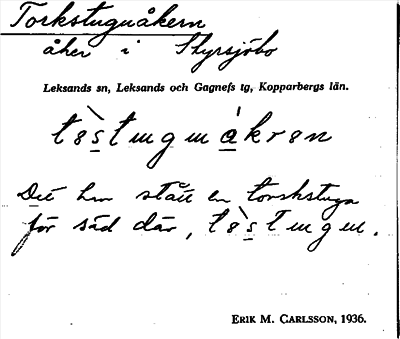 Torkstuguåkern
åker i Styrsjöbo
Leksands sn, Leksands och Gagnefs tg, Kopparbergs län.
Det har stått en torkstuga
för säd där,
ERIK M. CARLSSON, 1936.